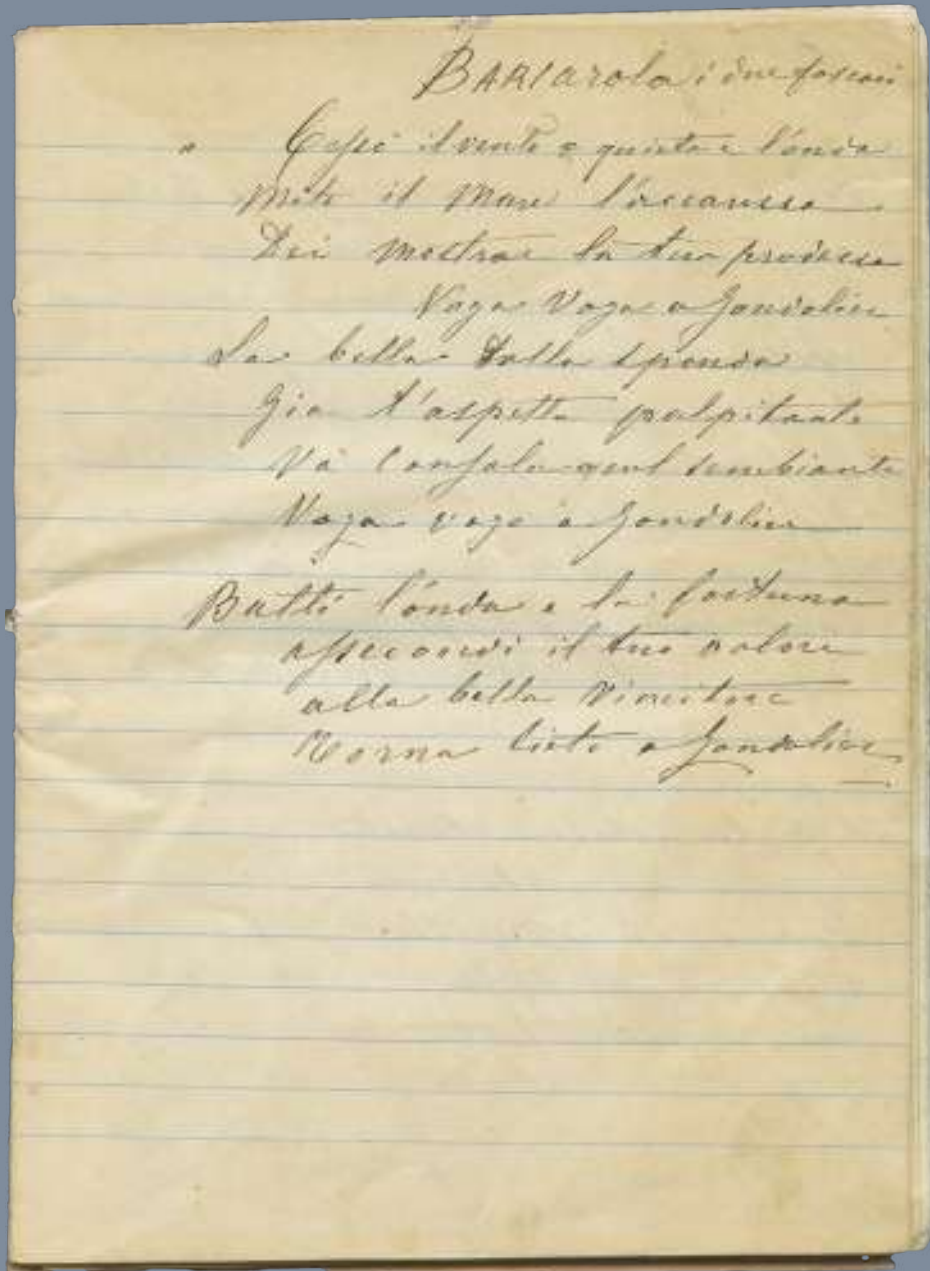 BARCArola i due foscari
Cessò il vento e quieta è l'onda
Mite il Mare l'accarezza
Dei mostrar la tua prodezza
Voga Voga o Gondolier
La bella dalla sponda
Gia t'aspetta palpitante
Va consola quel sembiante
Voga voga o Gondolier
Batti l'onda e la fortuna
assecondi il tuo valore
alla bella vincitore
Torna lieto o Gondolier